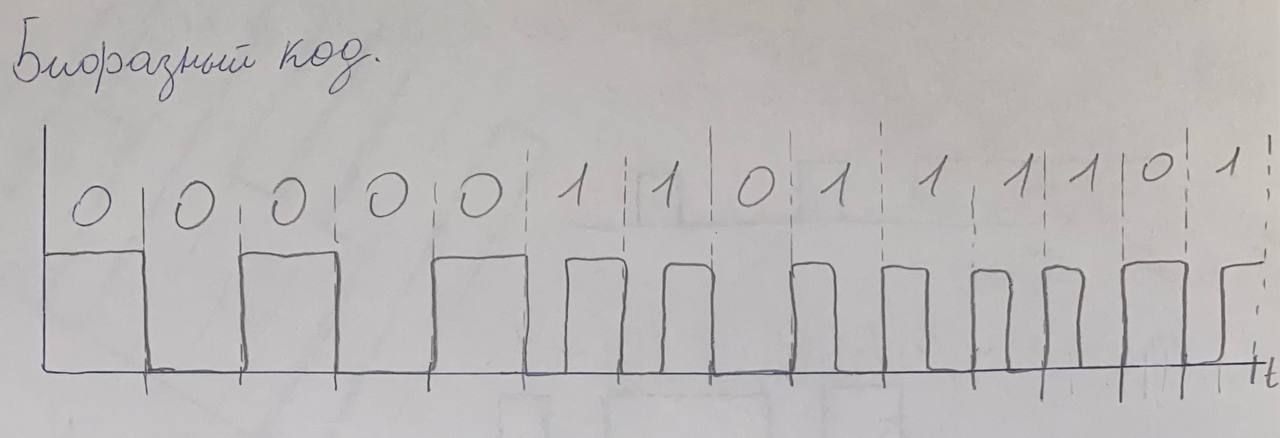 Бифазный код.
0 0 0 0 0 1 1 0 1 1 1 1 0 1
t